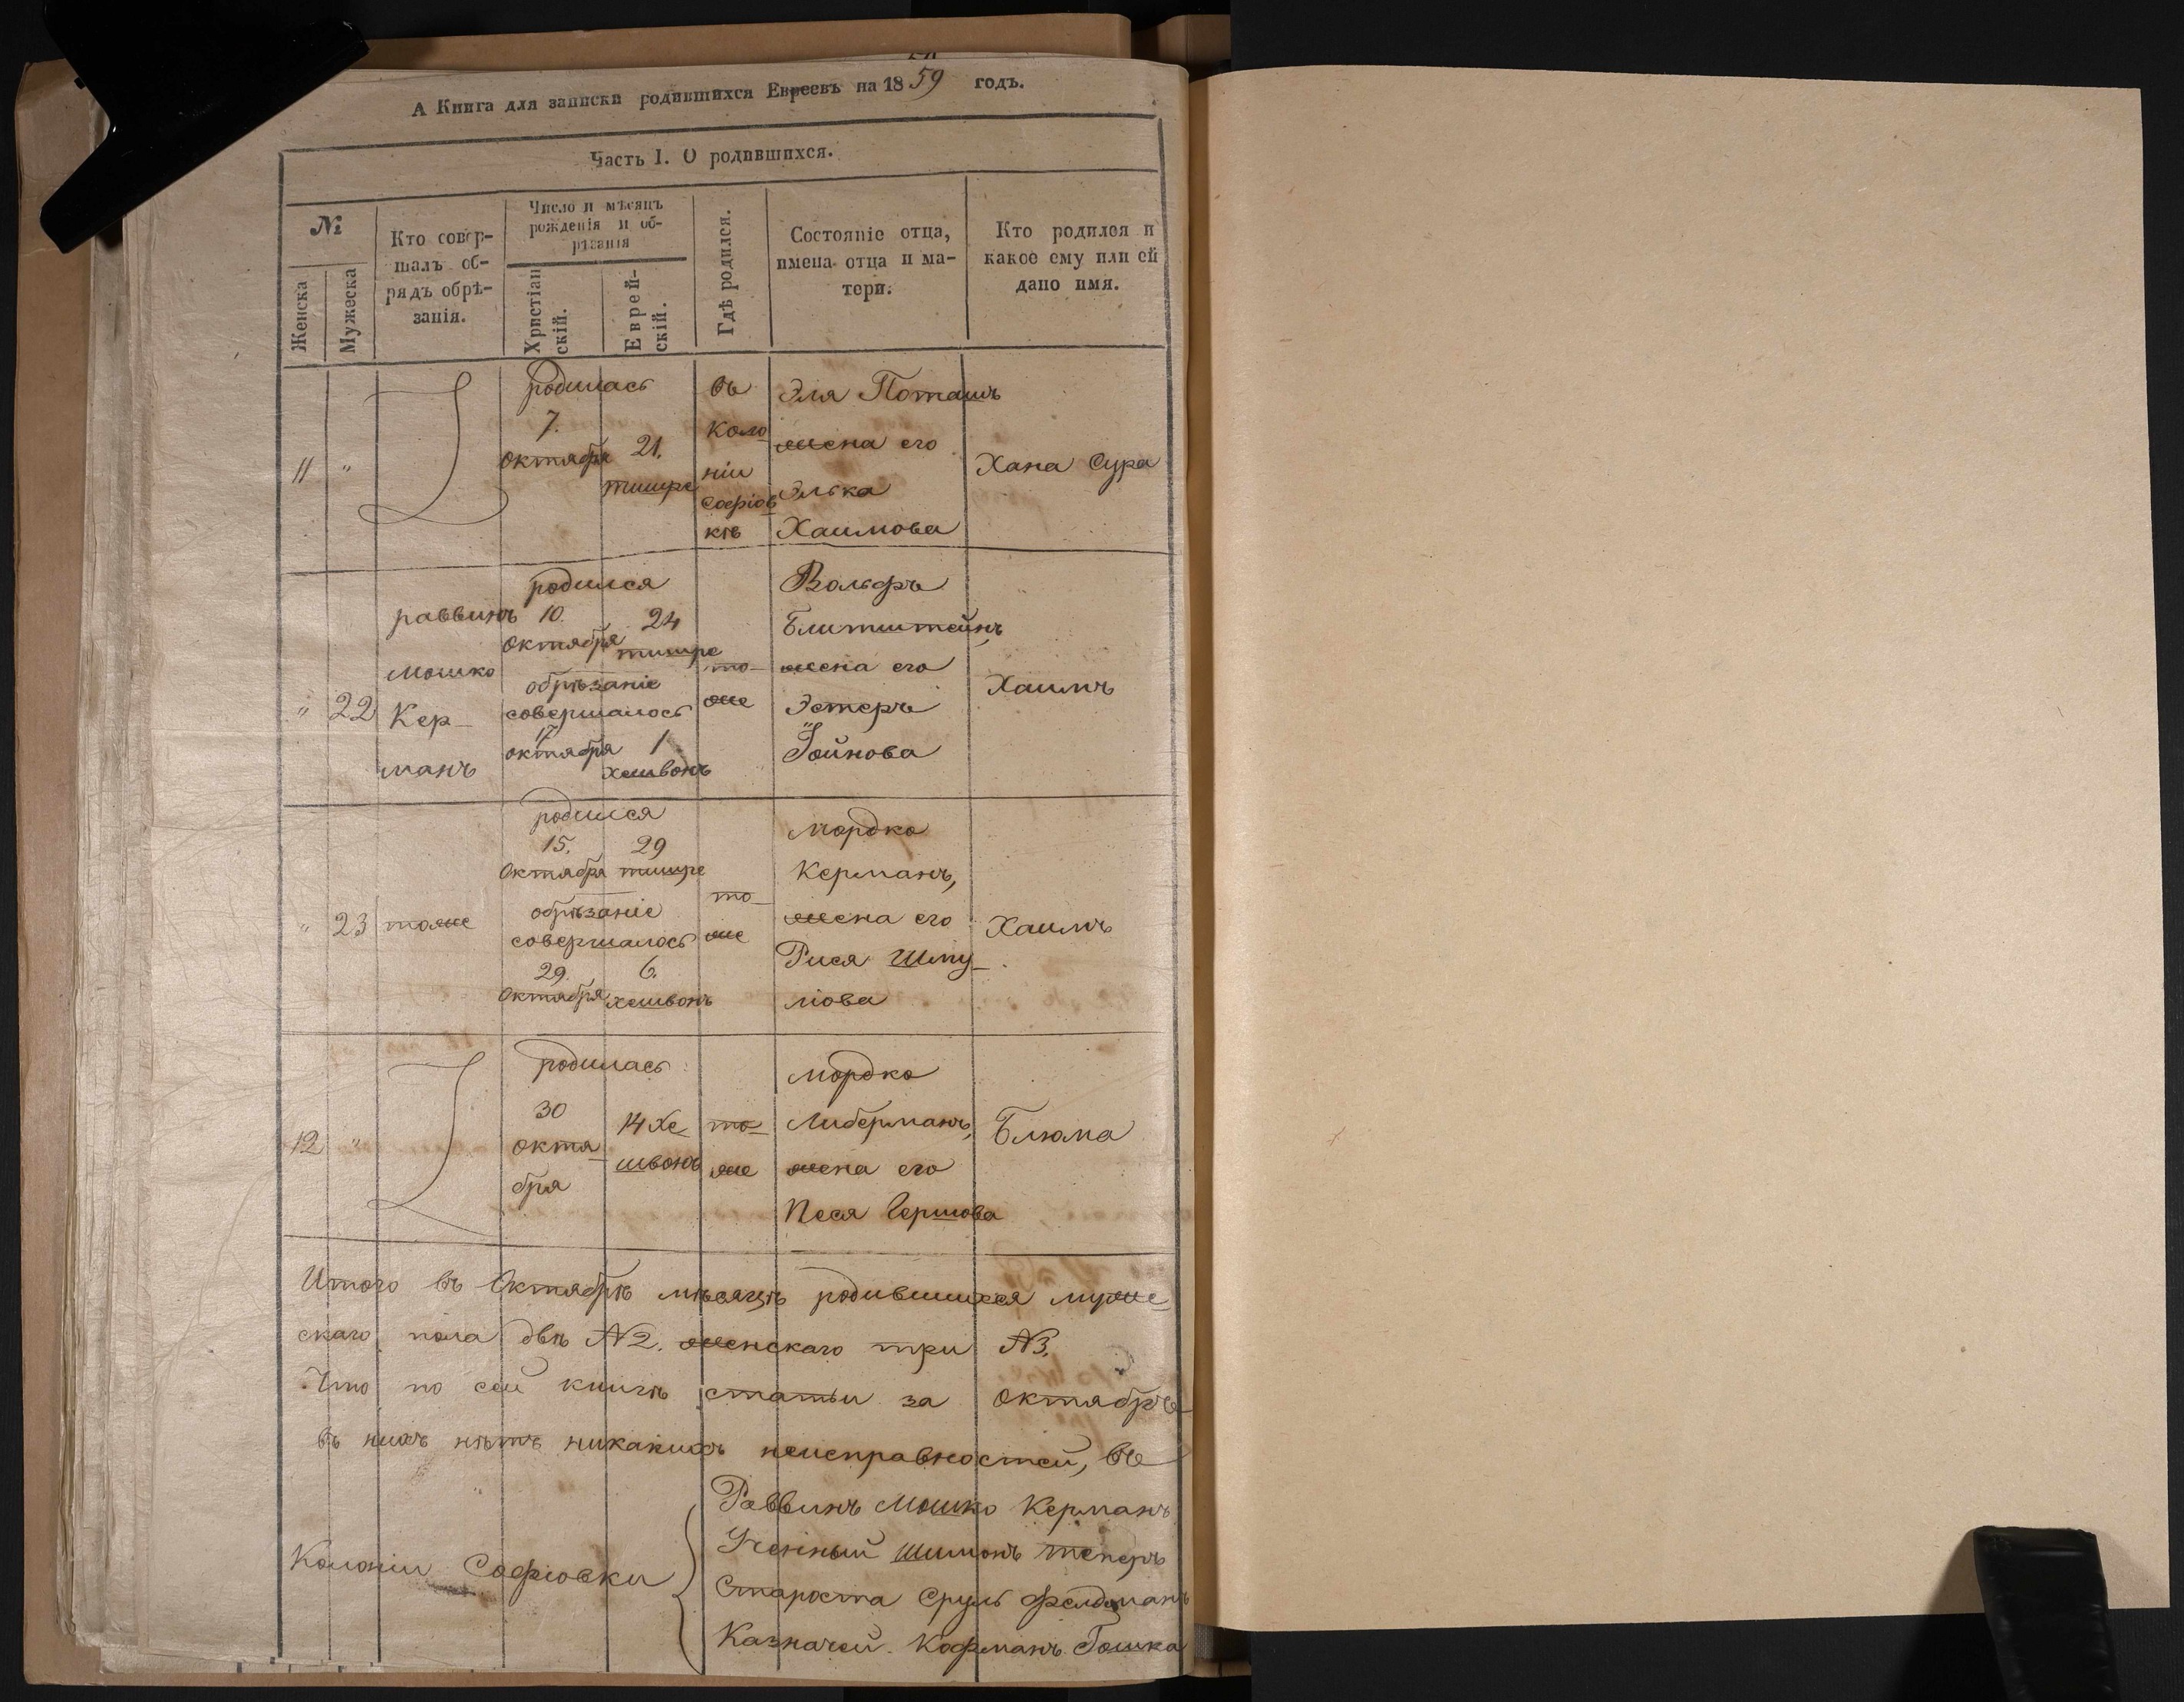 А Книга для записки родившихся Евреевъ на 1859 годъ.
Часть I. О родившихся.
№
Женска
Мужеска
Кто совер-
шалъ об-
рядъ обрѣ-
занія.
Число и мѣсяцъ
рожденія и об-
рѣзанія
Христіан
скій.
Еврей-
скій.
Гдѣ родился.
Состояніе отца,
имена отца и ма-
тери.
Кто родился и
какое ему или ей
дано имя.
11
"
родилась
7.
октября
21.
тишре
въ
Коло
ніи
Софіов
кѣ
Эля Поташъ
жена его
Элька
Хаимова
Хана Сура
"
22
раввинъ
Мошко
Кер-
манъ
родился
10.
октября
24
тишре
обрѣзаніе
совершалось
17
октября
1
хешвонъ
то-
же
Вольфъ
Блитштейнъ,
жена его
Эстеръ
Іойнова
Хаимъ
"
23
тоже
родился
15.
Октября
29
тишре
обрѣзаніе
совершалось
29.
Октября
6.
хешвонъ
то-
же
Мордко
Керманъ,
жена его
Рися Шму-
лова
Хаимъ
12
"
родилась
30
октя-
бря
14 Хе-
швонъ
то-
же
Мордко
Либерманъ,
жена его
Песя Гершова
Блюма
Итого въ Октябрѣ мѣсяцѣ родившихся муже-
скаго пола двѣ №2. женскаго три №3.
Что по сей книгѣ статьи за Октябрь
въ нихъ нѣтъ никакихъ неисправностей, въ
Колоніи Софіовки
Раввинъ Мошко Керманъ
Ученый Шимонъ
Староста Сруль Фелдманъ
Казначей. Кофманъ